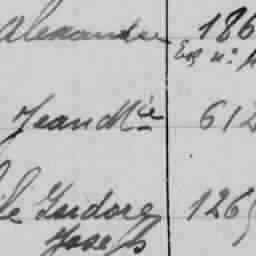 Alexandre 186
Exp n°
Jean Mie 612
Isidore 126
Joseph